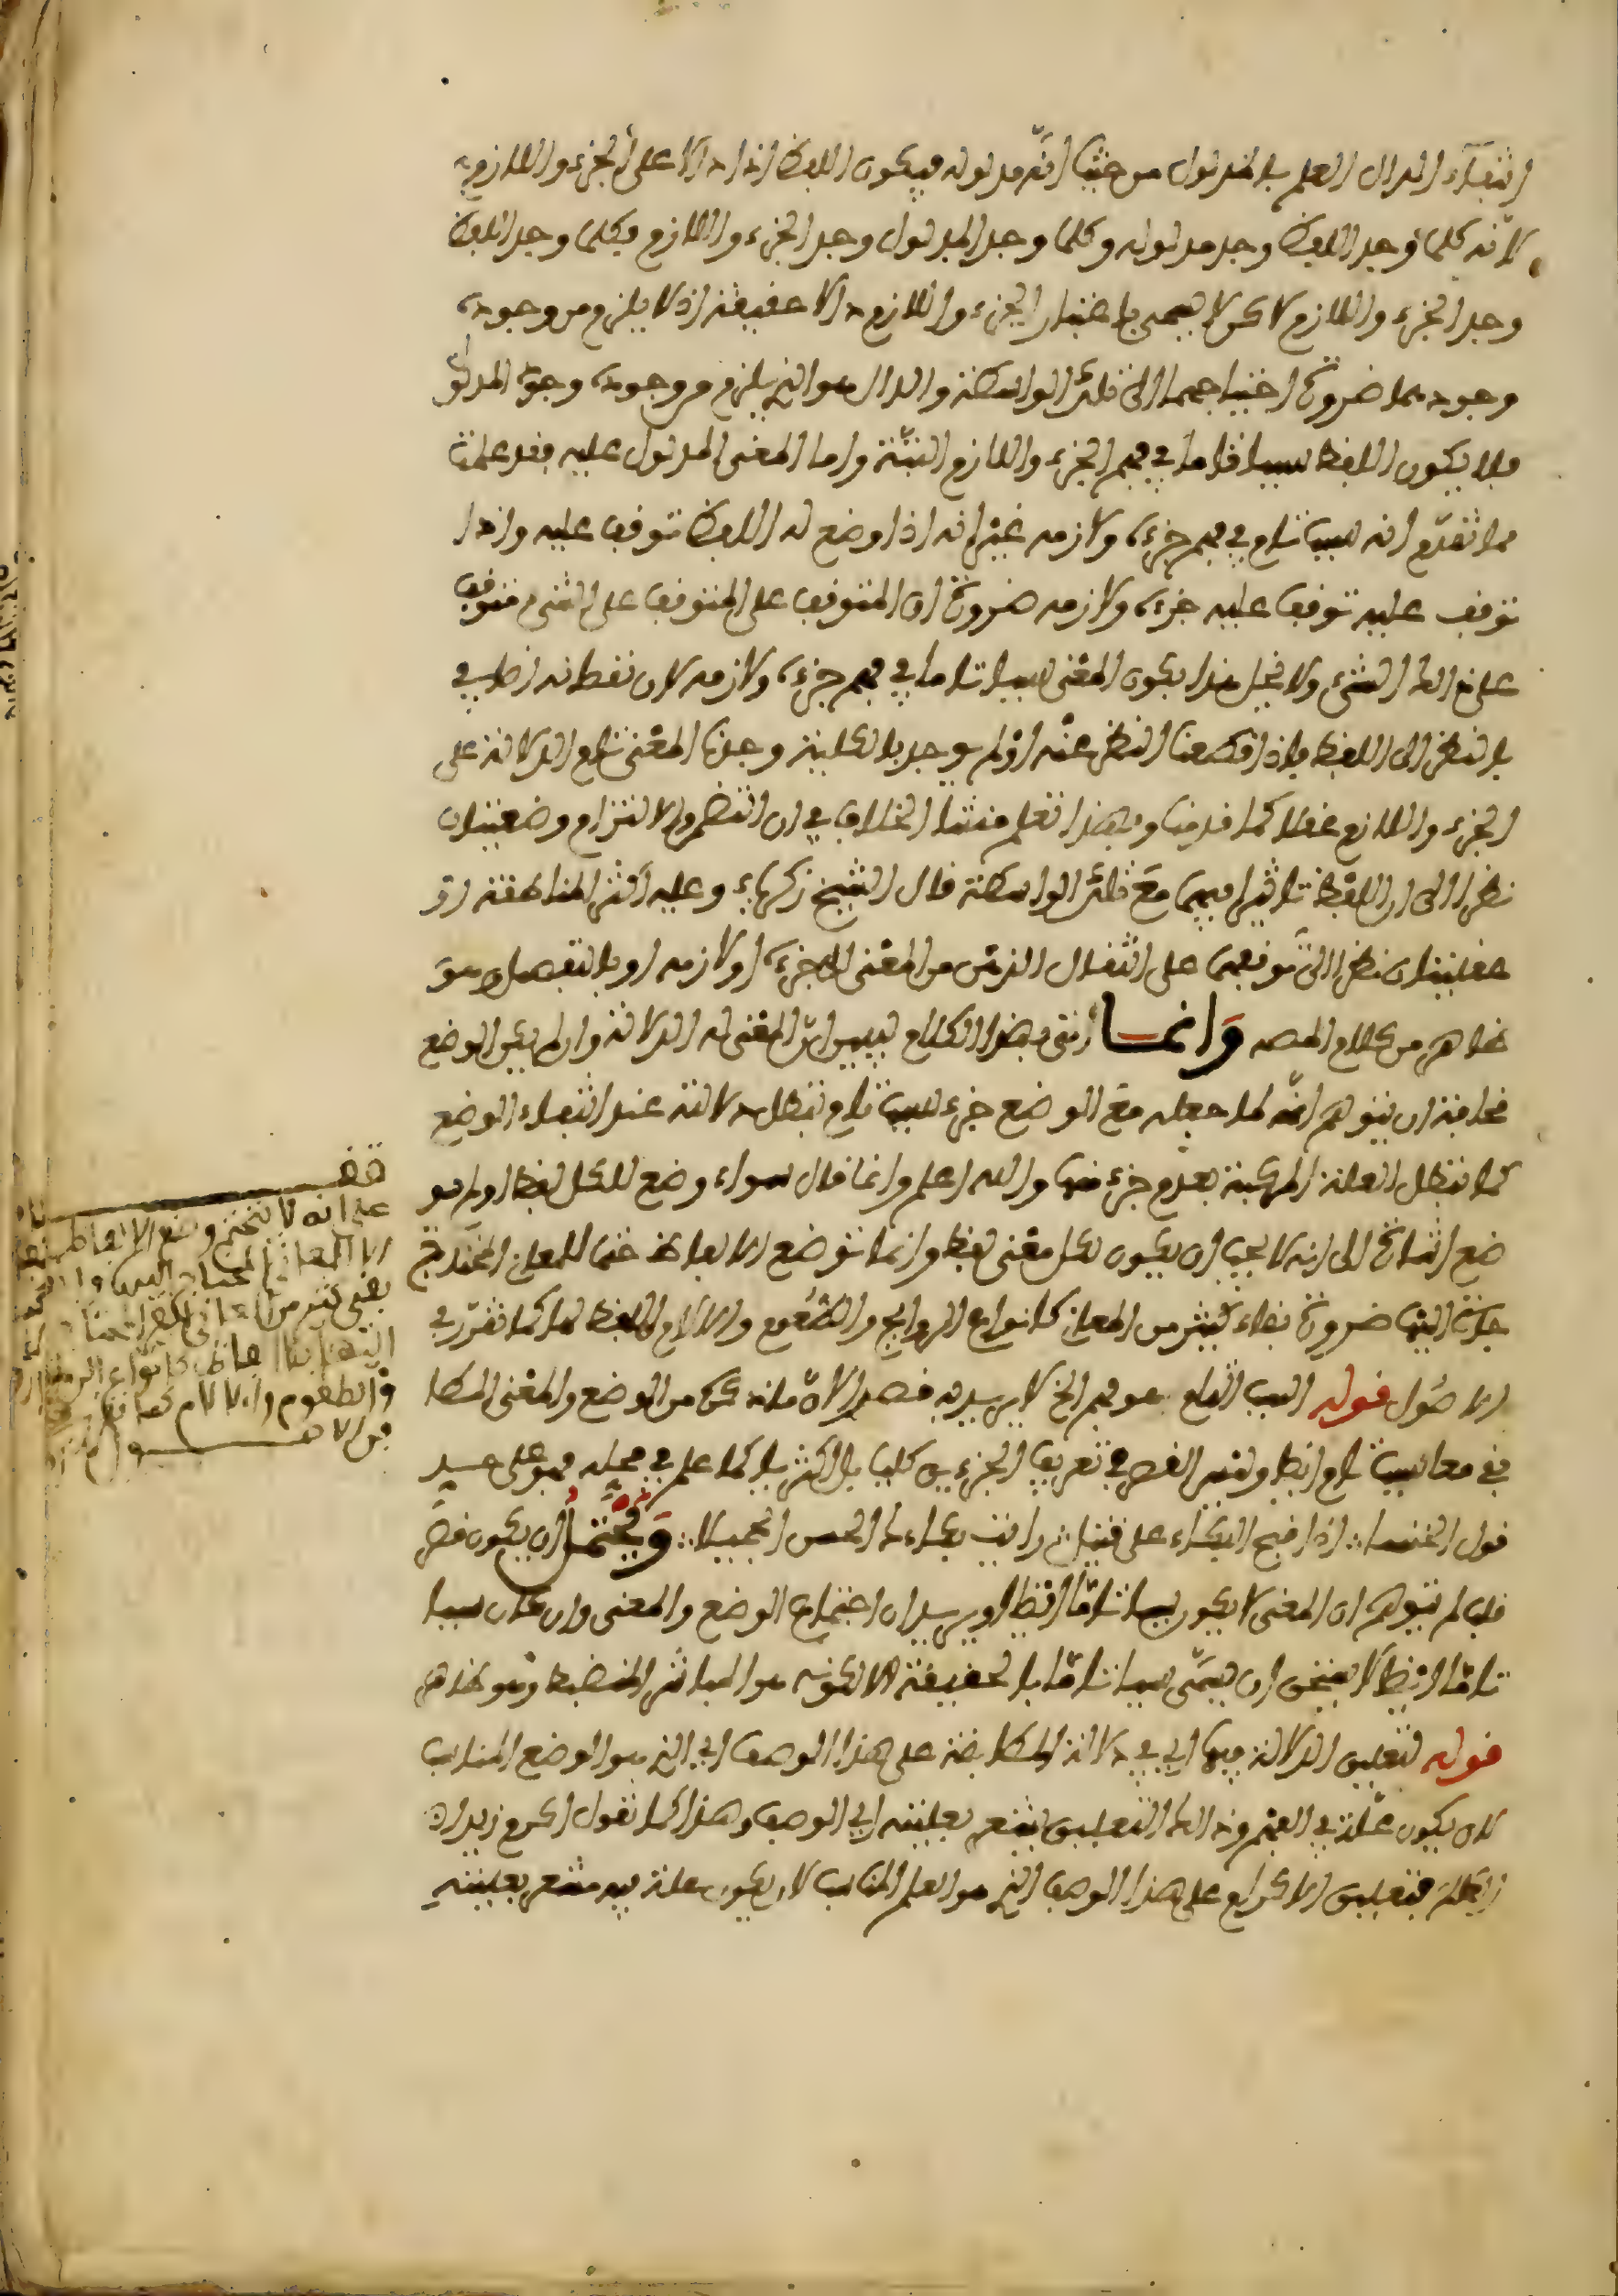 انتفاء الدال العلم بالمدلول من حيث انه مدلوله فيكون اللفظ اذا دالا على الجزء واللازم
لانه كلما وجد اللفظ وجد مدلوله وكلما وجد المدلول وجد الجزء واللازم فكلما وجد اللفظ
وجد الجزء واللازم لاكن لا يسمى باعتبار الجزء واللازم دالا حقيقة اذ لا يلزم من وجوده
وجودهما ضرورة احتياجهما الى تلك الواسطة والدال هو الذي يلزم من وجوده وجود المدلول
فلا يكون اللفظ سببا تاما في فهم الجزء واللازم البتة واما المعنى المدلول عليه فقد علمت
مما تقدم انه سبب تام في فهم جزءه ولازمه غير انه اذا وضع له اللفظ توقف عليه واذا
توقف عليه توقف عليه جزءه ولازمه ضرورة ان المتوقف على المتوقف على الشيء متوقف
على ذالك الشيء ولا يخل هذا بكون المعنى سببا تاما في فهم جزءه ولازمه لان نقصانه اضافي
بالنظر الى اللفظ فاذا قطعنا النظر عنه او لم يوجد بالكلية وجدنا المعنى تام الدلالة على
الجزء واللازم عقلا كما قدمنا وبهذا تعلم منشأ الخلاف في ان التضمن والالتزام وضعيتان
نظرا الى ان للفظ تاثيرا فيهما مع تلك الواسطة قال الشيخ زكرياء وعليه اكثر المناطقة او
عقليتان نظرا الى توقفهما على انتقال الذهن من المعنى الى جزءه او لازمه او بالتفصيل وهو
ظاهر من كلام المصه وانما اتى بهذا الكلام ليبين ان المعنى له الدلالة وان لم يكن الوضع
مخافة ان يتوهم انه لما جعله مع الوضع جزء سبب تام تبطل دلالته عند انتفاء الوضع
كما تبطل العلة المركبة بعدم جزء منها والله اعلم وانما قال سواء وضع للكل لفظ او لم يو
ضع اشارة الى انه لا يجب ان يكون لكل معنى لفظ وانما توضع الالفاظ حتما للمعاني المحتاج
حاجة اليها ضرورة بقاء كثير من المعاني كانواع الروايح والطعوم والالام بلا لفظ لها كما تقرر في
الاصول قوله السبب التام هو فهم الخ لا يريد به قصر الافادة كل من الوضع والمعنى المطا
بقي معا سبب تام ايضا وليس القصر في تعريف الجزءين كليا بل اكثريا كما علم في محله فهو على حد
قول الخنساء: اذا قبح البكاء على قتيل: رايت بكاءك الحسن الجميلا: ويحتمل ان يكون قصر
قلب لمن يتوهم ان المعنى لا يكون سببا تاما ايضا او يريد ان اجتماع الوضع والمعنى وان كان سببا
تاما ايضا لا يستحق ان يسمى سببا تاما بالحقيقة الا لكونه هو المباشر المنضبط وهو ظاهر
قوله لتعليق الدلالة فيها اي في دلالة المطابقة على هذا الوصف اي الذي هو الوضع المناسب
لان يكون علة في الفهم وذالك التعليق يشعر بعليته اي الوصف وهذا كما تقول اكرم زيدا
لعلمه فتعليق الاكرام على هذا الوصف الذي هو العلم المناسب لان يكون علة فيه مشعر بعليته
قف
على انه لا يتحتم وضع الالفاظ
الا للمعاني المحتاج اليها
بقي كثير من المعاني
كانواع الروايح
والطعوم والالام كما
في الاصول